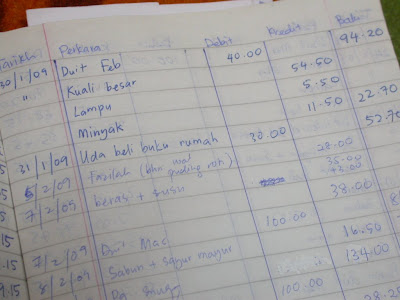 Tarikh Perkara Debit Kredit Baki
30/1/09 Duit Feb 40.00 94.20
" Kuali besar 54.50
Lampu 5.50
Minyak 11.50 22.70
31/1/09 Uda beli buku rumah 30.00 52.70
5/2/09 Fazilah (bhn wat puding roti) 28.00
7/2/09 beras + susu 35.00
38.00
7/2/09 Duit Mas 100.00
8/2/09 Sabun + sayur mayur 16.50
134.00
100.00
28.25